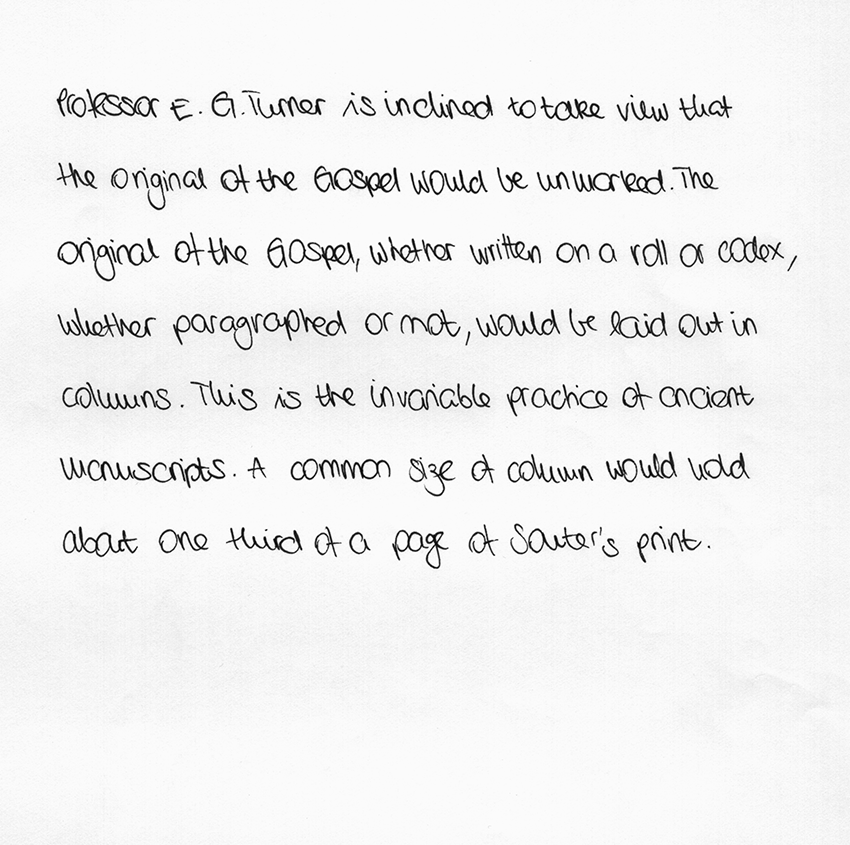 Professor E. G. Turner is inclined to take view that
the original of the Gospel would be unworked. The
original of the Gospel, whether written on a roll or codex,
whether paragraphed or not, would be laid out in
columns. This is the invariable practice of ancient
manuscripts. A common size of column would hold
about one third of a page of Souter's print.